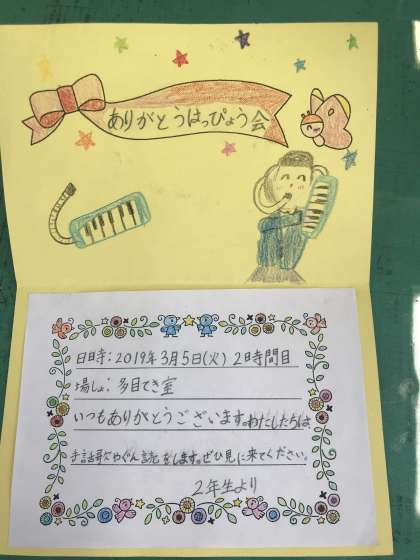 ありがとうはっぴょう会
日時:2019年3月5日(火) 2時間目
場しょ:多目てき室
いつもありがとうございます。わたしたちは、
ぐん読をします。ぜひ見に来てください。
2年生より